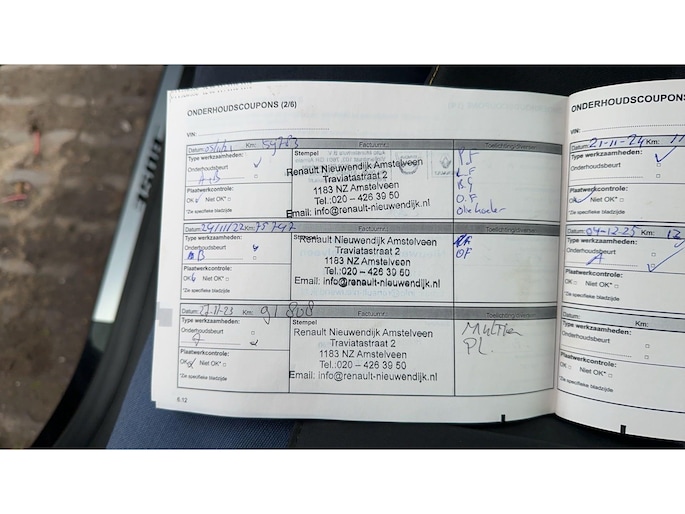 ONDERHOUDSCOUPONS (2/6)
VIN:
Datum: Km: 59783 Factuurnr. Toelichting/diversen
Type werkzaamheden: Stempel
Onderhoudsbeurt
A+B
Plaatwerkcontrole:
OK Niet OK*
*Zie specifieke bladzijde
Renault Nieuwendijk Amstelveen
Traviatastraat 2
1183 NZ Amstelveen
Tel.:020 – 426 39 50
Email: info@renault-nieuwendijk.nl
P.F
L.F
B.G
O.F
Datum: 24/11/22 Km: 75747 Factuurnr. Toelichting/diversen
Type werkzaamheden: Stempel
Onderhoudsbeurt
B
Plaatwerkcontrole:
OK Niet OK*
*Zie specifieke bladzijde
Renault Nieuwendijk Amstelveen
Traviatastraat 2
1183 NZ Amstelveen
Tel.:020 – 426 39 50
Email: info@renault-nieuwendijk.nl
OF
Datum: Km: 91808 Factuurnr. Toelichting/diversen
Type werkzaamheden: Stempel
Onderhoudsbeurt
Plaatwerkcontrole:
OK Niet OK*
*Zie specifieke bladzijde
Renault Nieuwendijk Amstelveen
Traviatastraat 2
1183 NZ Amstelveen
Tel.:020 – 426 39 50
Email: info@renault-nieuwendijk.nl
PL.
6.12
ONDERHOUDSCOUPONS
VIN:
Datum: 21-11-24 Km: 11
Type werkzaamheden:
Onderhoudsbeurt
Plaatwerkcontrole:
OK Niet OK*
*Zie specifieke bladzijde
Datum: 04-12-25 Km: 12
Type werkzaamheden:
Onderhoudsbeurt
A
Plaatwerkcontrole:
OK Niet OK*
*Zie specifieke bladzijde
Datum: Km:
Type werkzaamheden:
Onderhoudsbeurt
Plaatwerkcontrole:
OK Niet OK*
*Zie specifieke bladzijde